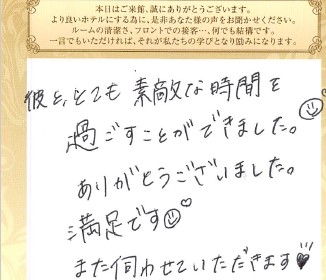 本日はご来館、誠にありがとうございます。
より良いホテルにする為に、是非あなた様の声をお聞かせください。
ルームの清潔さ、フロントでの接客…、何でも結構です。
一言でもいただければ、それが私たちの学びとなり励みになります。
彼と、とても素敵な時間を
過ごすことができました。
ありがとうございました。
満足です
また伺わせていただきます